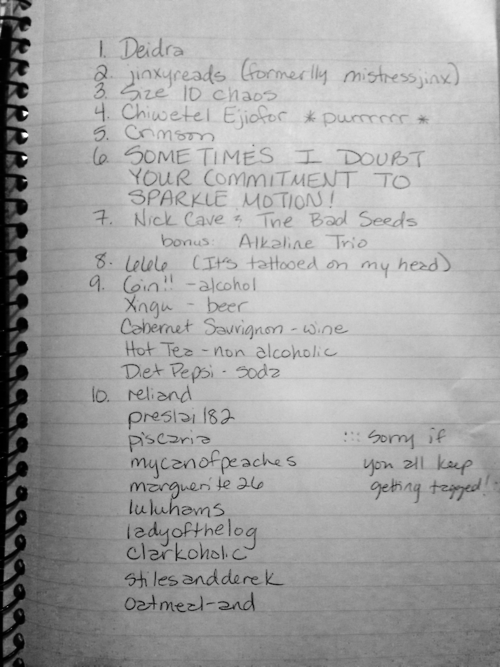 1. Deidra
2. jinxyreads (formerlly mistressjinx)
3. Size 10 chaos
4. Chiwetel Ejiofor *purrrrrr*
5. Crimson
6. SOMETIMES I DOUBT
YOUR COMMITMENT TO
SPARKLE MOTION!
7. Nick Cave & The Bad Seeds
bonus: Alkaline Trio
8. 666 (It's tattooed on my head)
9. Gin!! - alcohol
Xngu - beer
Cabernet Sauvignon - wine
Hot Tea - non alcoholic
Diet Pepsi - soda
10. reliand
preslai182
piscaria
mycanofpeaches
marguerite26
luluhams
ladyofthelog
clarkoholic
stilesandderek
oatmeal-and
::: sorry if
you all keep
getting tagged!